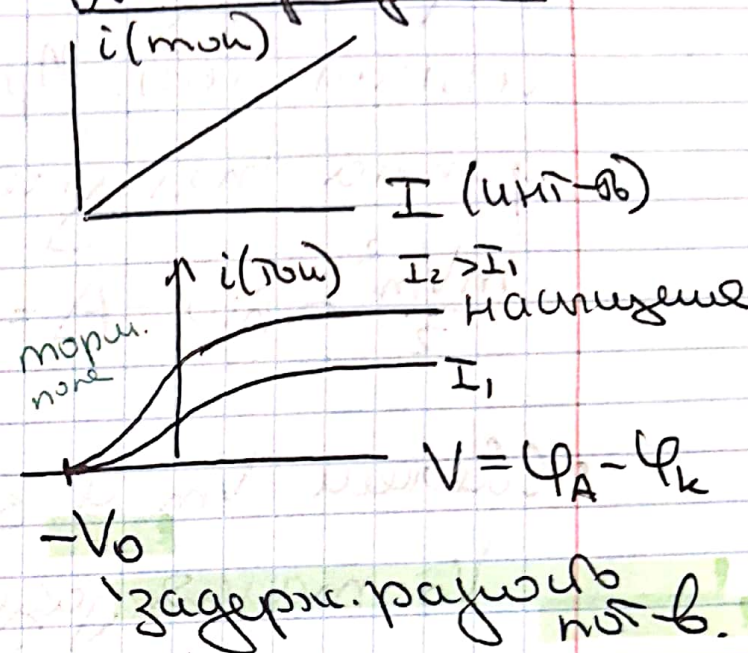 i(ток)
I (инт-ть)
i(ток) I₂ > I₁
насыщение
торм.
поле
I₁
V = φ_A - φ_k
-V₀
задерж. разность
пот-в.